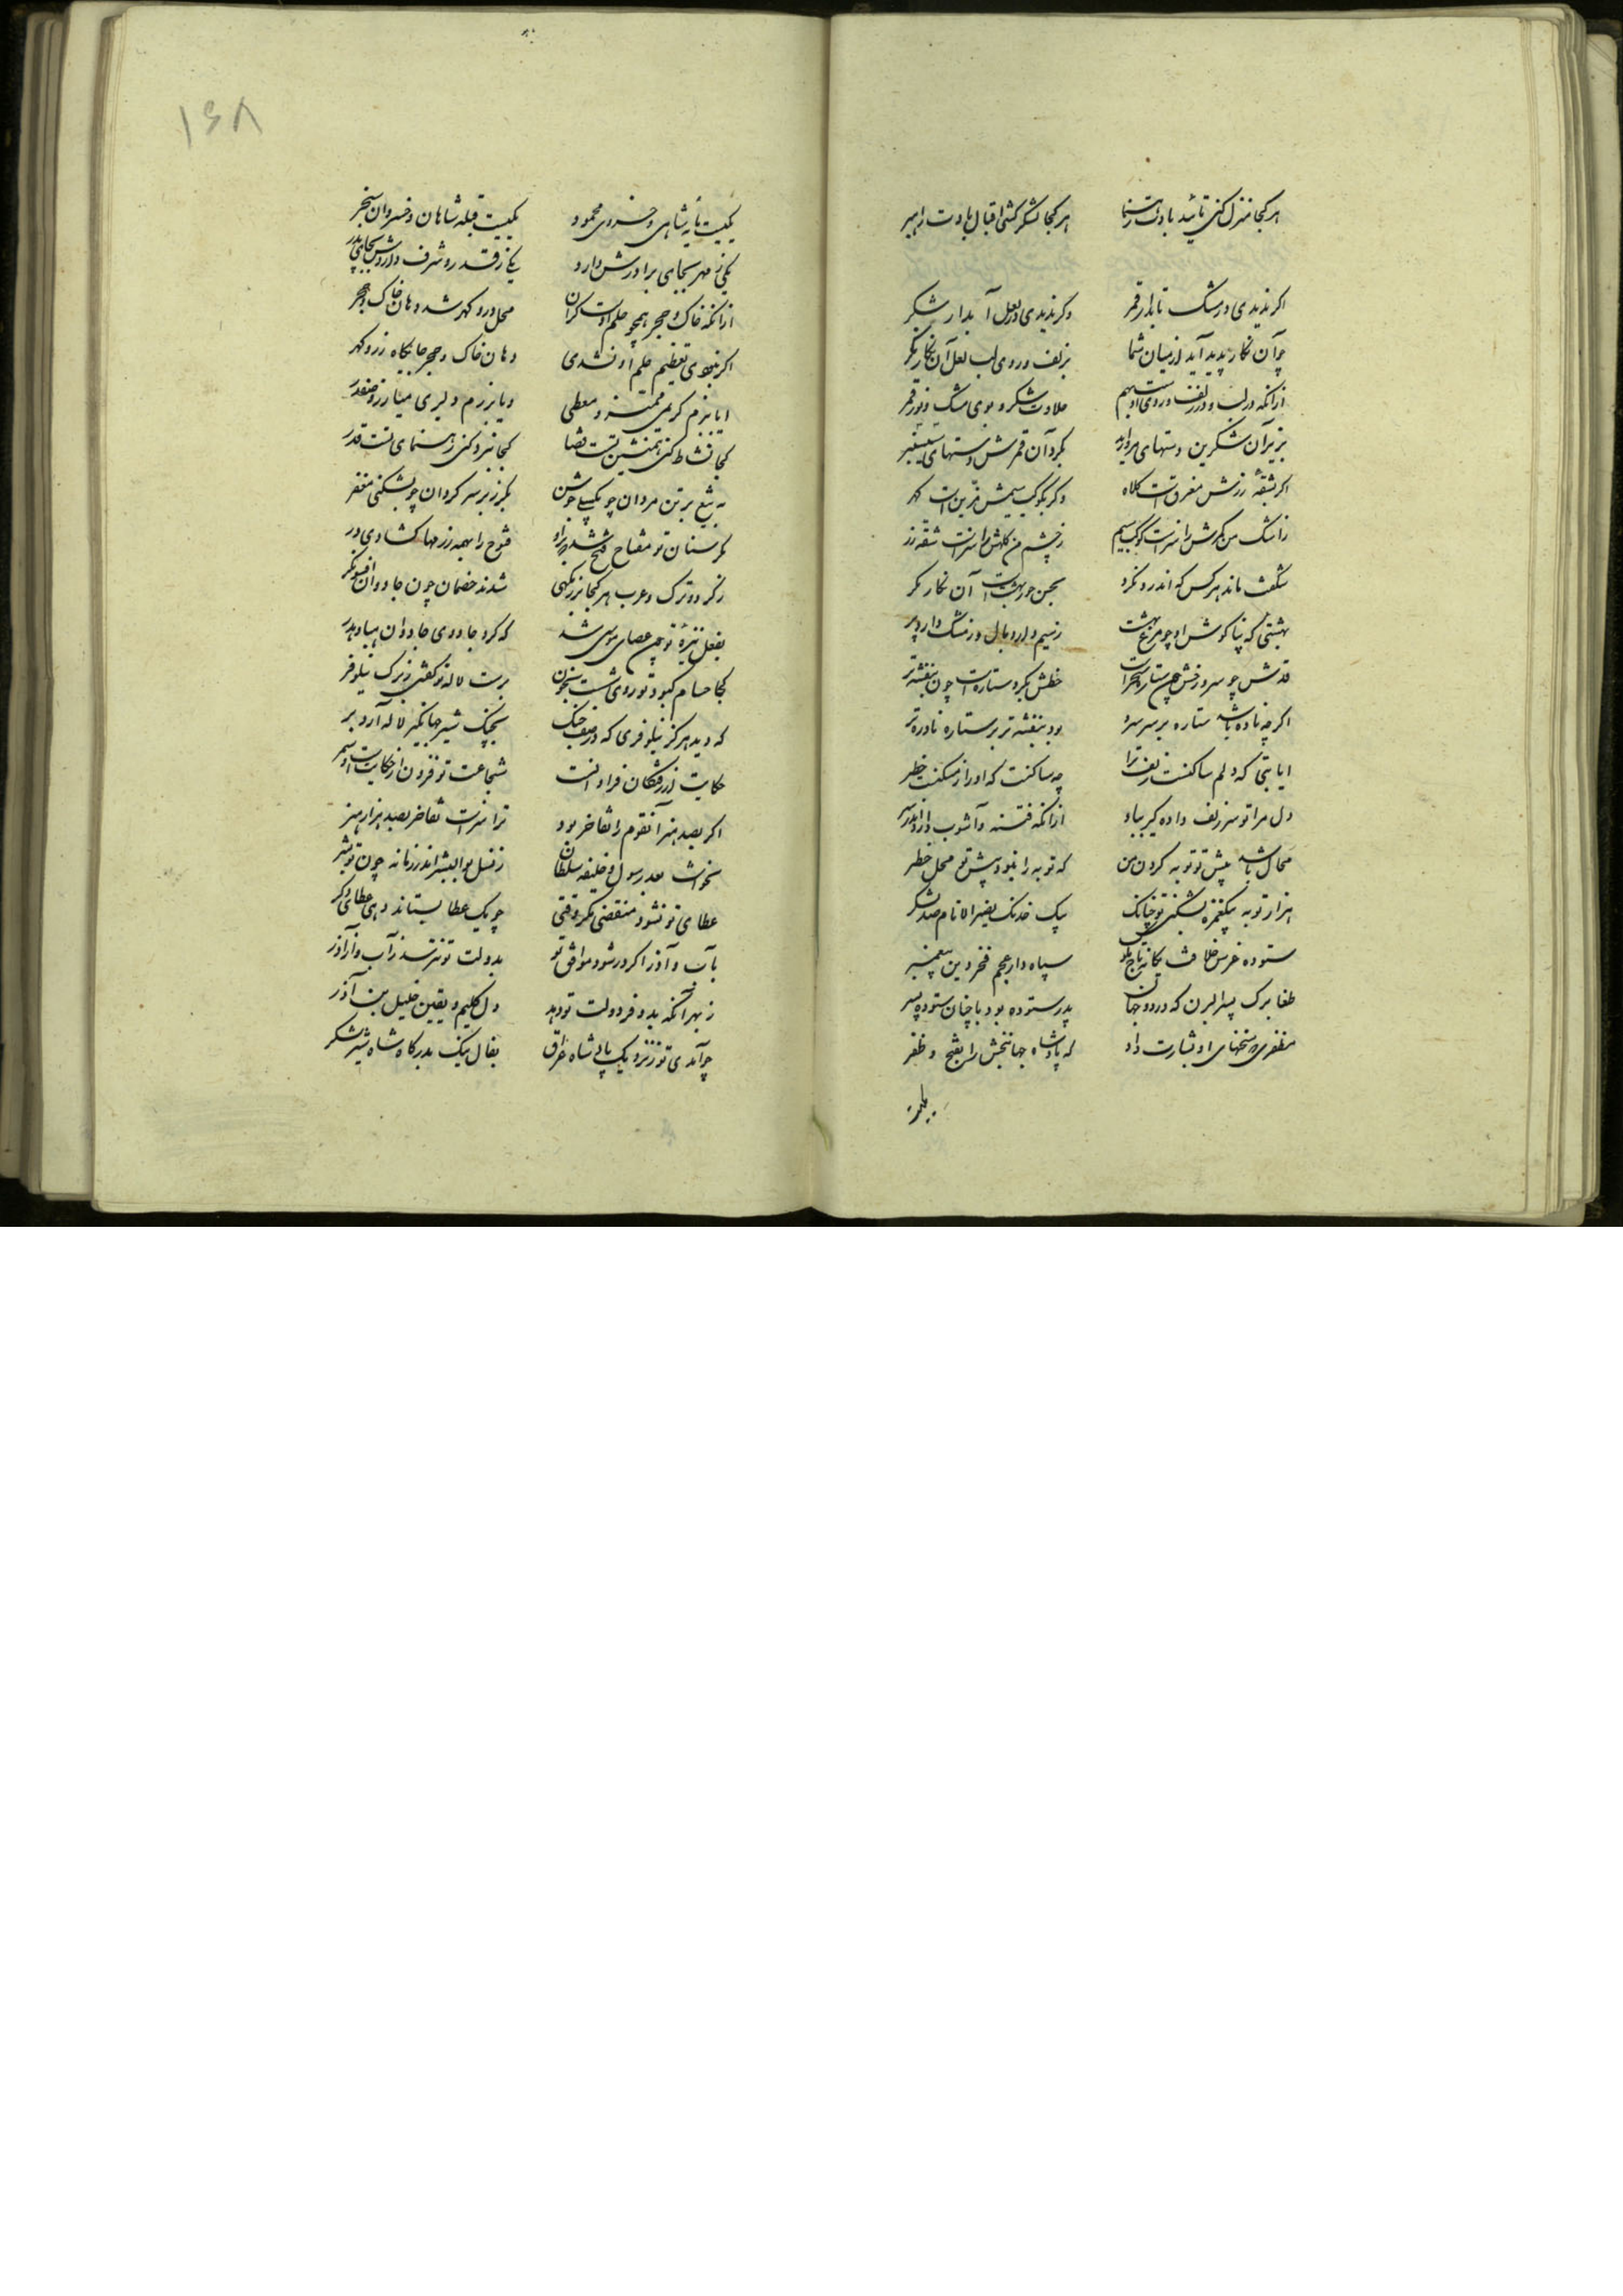 هرکجا منزل کنی تائید بادت رهنما هرکجا لشکر کشی اقبال بادت راهبر
اکر ندیدی در مشک تابدار قمر وکر ندیدی در لعل آبدار شکر
چو آن نکار پدید آید از میان شما بزلف و روی و لب لعل آن نکار نکر
ازانکه در لب و در زلف و روی اوست بهم حلاوت شکر و بوی مشک و نور قمر
بزیر آن شکرین رستهای مروارید بکرد آن قمرش دستهای سیسنبر
اکر بشقه زرش مغرق است کلاه وکر بکوکب سیمش مزین است کمر
ز اشک من کمرش را سزاست کوکب سیم ز چشم من کلهش را سزاست شقه زر
شکفت ماند هرکس که اندرو نکرد بحسن حور بهشت است آن نکار مکر
بهشتی که بناکوش او چو مرغ بهشت ز سیم دارد بال و ز مشک دارد پر
قدش چو سرو و رخش چون ستاره سحر است خطش بکرد ستاره است چون بنفشه تر
اکرچه نادره باشد ستاره بر سر سرو بود بنفشه تر بر ستاره نادره تر
ایا بتی که دلم ساکنست زلف ترا چه ساکنست که او را ز مسکنست خطر
دل مرا تو سر زلف داده کیر بباد ازانکه فتنه و آشوب دارد اندر سر
محال باشد پیش تو توبه کردن من که توبه را نبود پیش تو محل خطر
هزار توبه بیکغمزه بشکنی تو چنانک بیک خدنک نصیر الانام صد لشکر
ستوده عرس خلافت یکانه تاج ملوک سپاه دار عجم فخر دین پیغمبر
طغا برک پسر الب‌رن که در دو جهان پدر ستوده بود با چنان ستوده پسر
مظفری که سخنهای او بشارت داد که پادشاه جهانبخش را بفتح و ظفر
۱۶۸
یکیست مایه شاهی و خسروی محمود یکیست قبله شاهان و خسروان سنجر
یکی ز مهر بجای برادرش دارد یکی ز قدر و شرف داردش بجای پدر
ازانکه خاک و حجر همچو حلم اوست کران محل در و کهر شد دهان خاک و حجر
اکر نبودی تعظیم حلم او نشدی دهان خاک و حجر جایکاه زر و کهر
ایا ببزم کریمی ممیز و معطی و یا برزم دلیری مبارز و صفدر
کجا نشاط کنی همنشین تست قضا کجا نبرد کنی رهنمای تست قدر
به تیغ بر تن مردان چو بکسلی جوشن بکرز بر سر کردان چو بشکنی مغفر
مکر سنان تو مفتاح فتح شد که برو فتوح را بهمه رزمها کشادی در
ز کرد و ترک و عرب هرکجا بزرکیهی شدند خصمان چون جادوان افسونکر
بفعل نیزه تو چون عصای موسی شد که کرد جادوی جادوان هبا و هدر
کجا حسام کبود تو روی شست بخون برست لاله تو کفتی ز برک نیلوفر
که دید هرکز نیلوفری که در صف جنک بچنک شیر جهانکیر لاله آرد بر
حکایت از رفتکان فراوانست شجاعت تو فزون از حکایت است و سمر
اکر بصد هنر آنقوم را تفاخر بود ترا سزاست تفاخر بصد هزار هنر
نخواست بعد رسول و خلیفه و سلطان ز نسل بوالبشر اندر زمانه چون تو بشر
عطای تو نشود منقضی مکر وقتی چو یک عطا بستاند دهی عطای دکر
بآب و آذر اکر در شود موافق تو بدولت تو نترسد ز آب و از آذر
ز بهر آنکه بدو فر دولت تو دهد دل کلیم و یقین خلیل بن آذر
چو آمدی تو ز نزدیک پادشاه عراق بفال نیک بدرکاه شاه شیر شکر